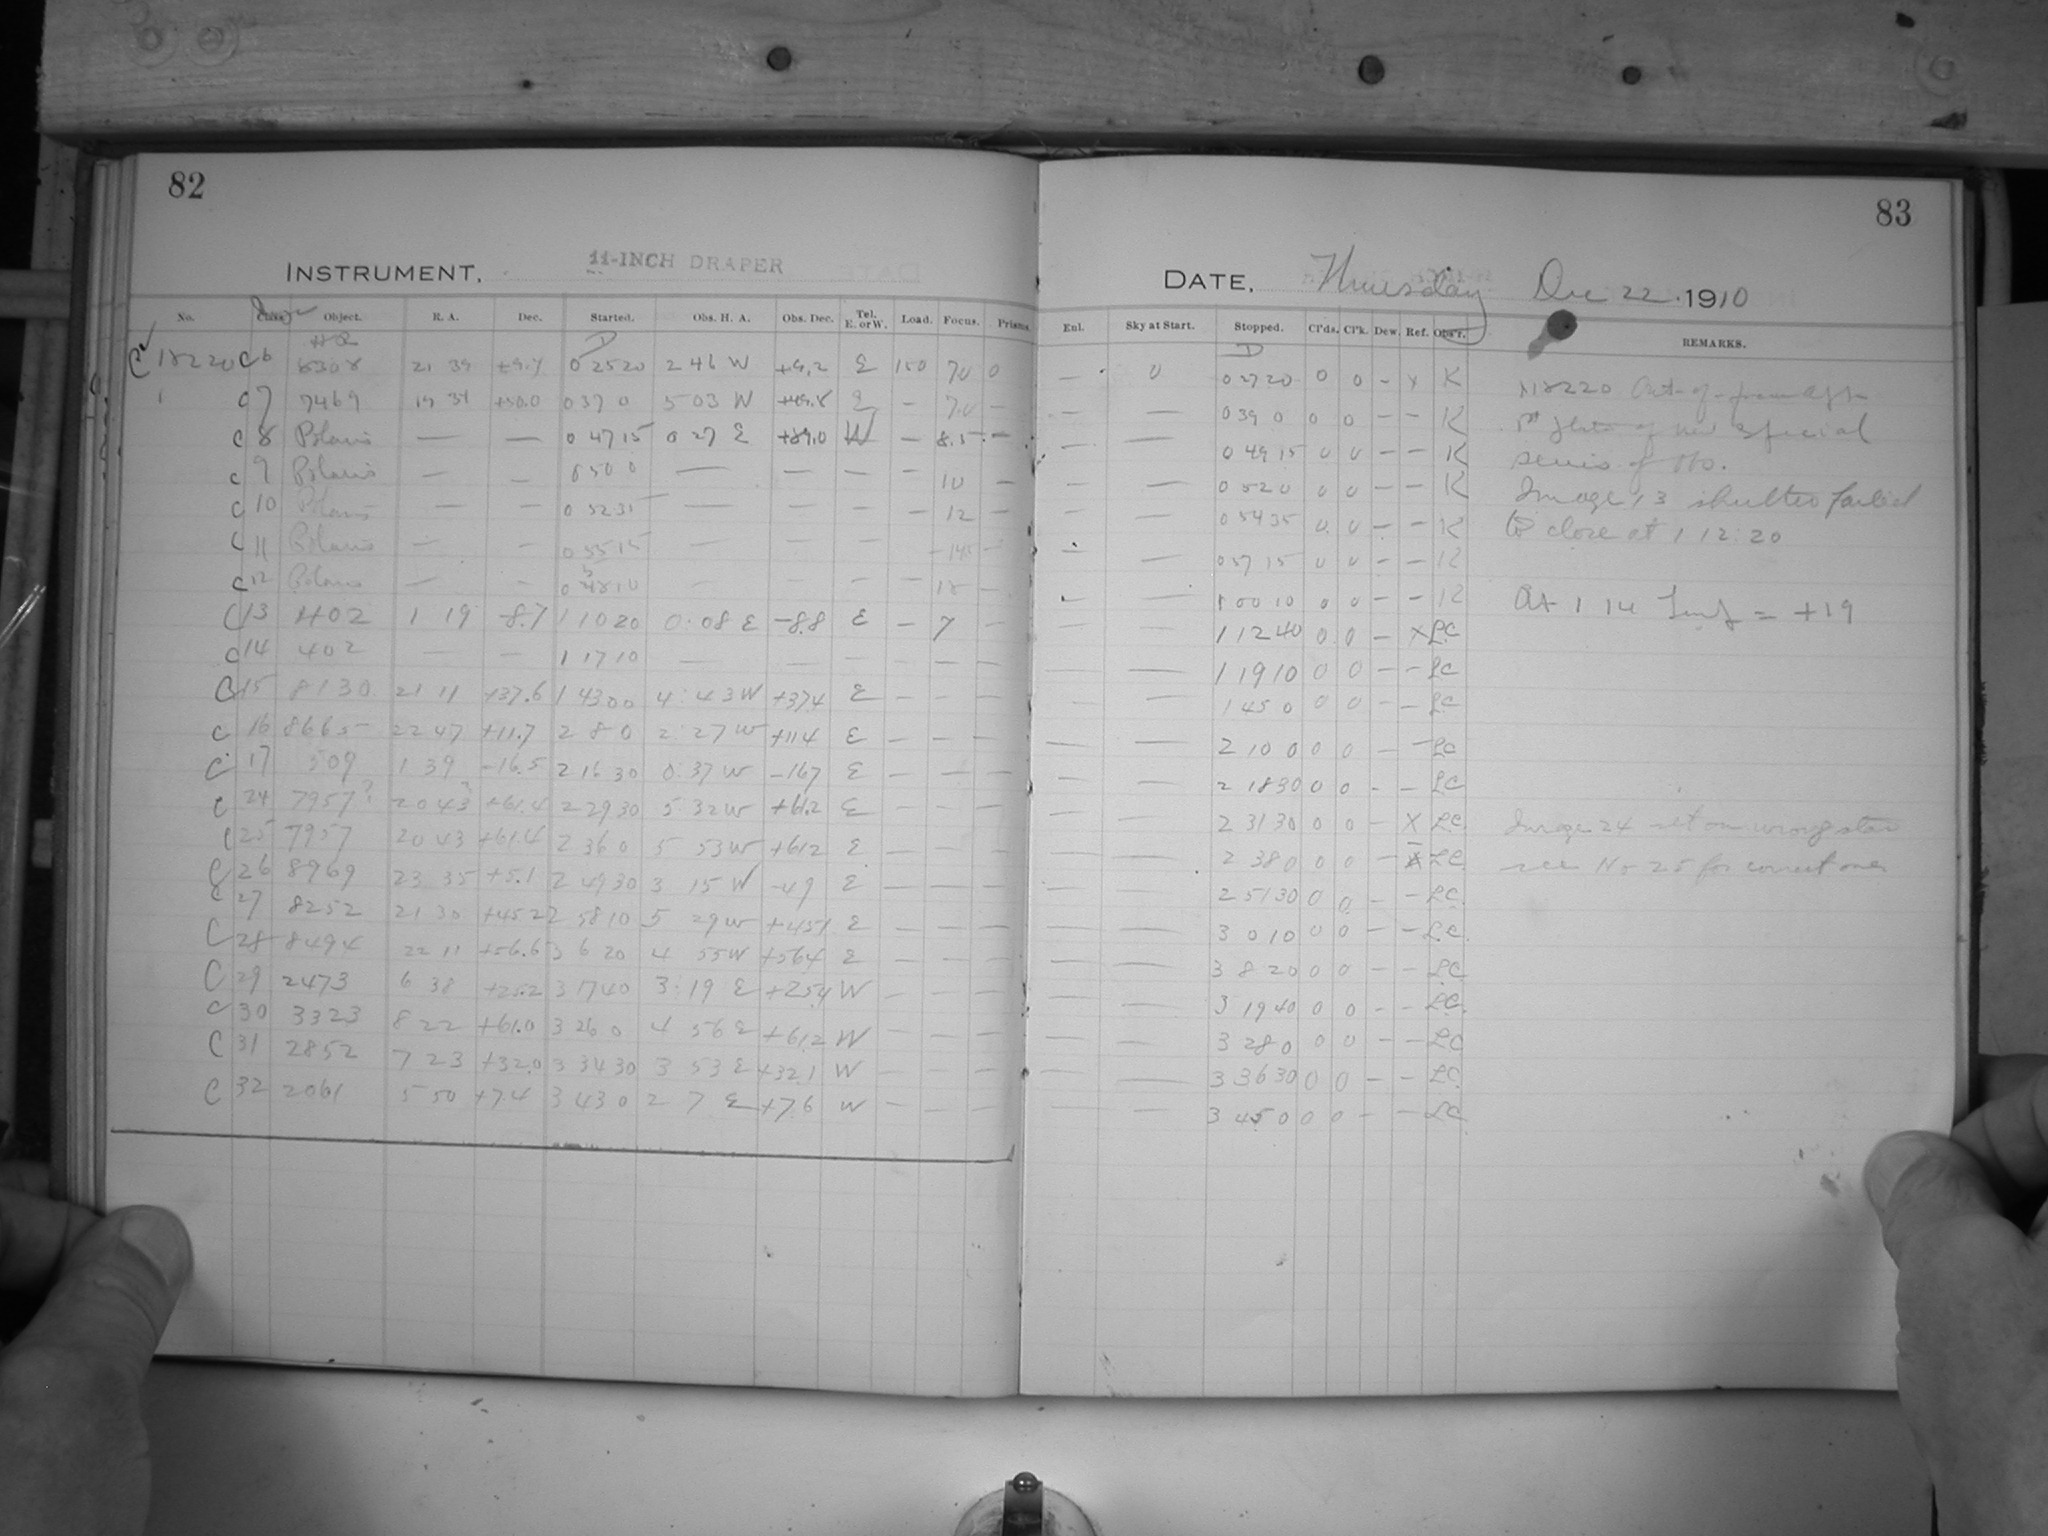 82
INSTRUMENT. 11-INCH DRAPER
No. Class Image Object. R. A. Dec. Started. Obs. H. A. Obs. Dec. Tel. E. or W. Load. Focus. Prisms.
HR D
C 18220 C 6 8308 21 39 +9.4 0 25 20 2 46 W +9.2 E 150 70 0
C 7 7469 19 34 +50.0 0 37 0 5 03 W E — 7.0 —
C 8 Polaris — — 0 47 15 0 27 E +89.0 W — 8.5 —
C 9 Polaris — — 0 50 0 — — — — 10 —
C 10 Polaris — — 0 52 35 — — — — 12 —
C 11 Polaris — — 0 55 15 — — — —
C 12 Polaris — — — — — — 18 —
C 13 402 1 19 -8.7 1 10 20 0:08 E -8.8 E — 7 —
C 14 402 — — 1 17 10 — — — — — —
C 15 8130 21 11 +37.6 1 43 00 4:43 W +374 E — — —
C 16 8665 22 47 +11.7 2 8 0 2:27 W +114 E — — —
C 17 509 1 39 -16.5 2 16 30 0:37 W -167 E — — —
C 24 7957? 20 43? +61.4 2 29 30 5 32 W +61.2 E — — —
C 25 7957 20 43 +61.4 2 36 0 5 53 W +612 E — — —
C 26 8969 23 35 +5.1 2 49 30 3 15 W -49 E — — —
C 27 8252 21 30 +45.2 2 58 10 5 29 W +451 E — — —
C 28 8494 22 11 +56.6 3 6 20 4 55 W +564 E — — —
C 29 2473 6 38 +25.2 3 17 40 3:19 E +254 W — — —
C 30 3323 8 22 +61.0 3 26 0 4 56 E +61.2 W — — —
C 31 2852 7 23 +32.0 3 34 30 3 53 E +32.1 W — — —
C 32 2061 5 50 +7.4 3 43 0 2 7 E +7.6 W — — —
83
DATE. Thursday Dec 22. 1910
Enl. Sky at Start. Stopped. Cl'ds. Cl'k. Dew. Ref. Obs'r. REMARKS.
D
— 0 0 27 20 0 0 - x K
— — 0 39 0 0 0 — — K
— — 0 49 15 0 0 — — K
— — 0 52 0 0 0 — — K
— — 0 54 35 0 0 — — K
— — 0 57 15 0 0 — — K
— — 1 00 10 0 0 — — K
— — 1 12 40 0 0 — X LC
— — 1 19 10 0 0 — — LC
— — 1 45 0 0 0 — — LC
— — 2 10 0 0 0 — — LC
— — 2 18 30 0 0 - - LC
— — 2 31 30 0 0 — X LC
— — 2 38 0 0 0 — X LC
— — 2 51 30 0 0 — — LC
— — 3 0 10 0 0 — — LC
— — 3 8 20 0 0 — — LC
— — 3 19 40 0 0 — — LC
— — 3 28 0 0 0 — — LC
— — 3 36 30 0 0 — — LC
— — 3 45 0 0 0 — — LC
18220 Out-of-
1st plate of new special
series of
Image 13 shutter failed
to close at 1 12:20
At 1 14 Temp = +19
Image 24 set on wrong star
see No 25 for correct one